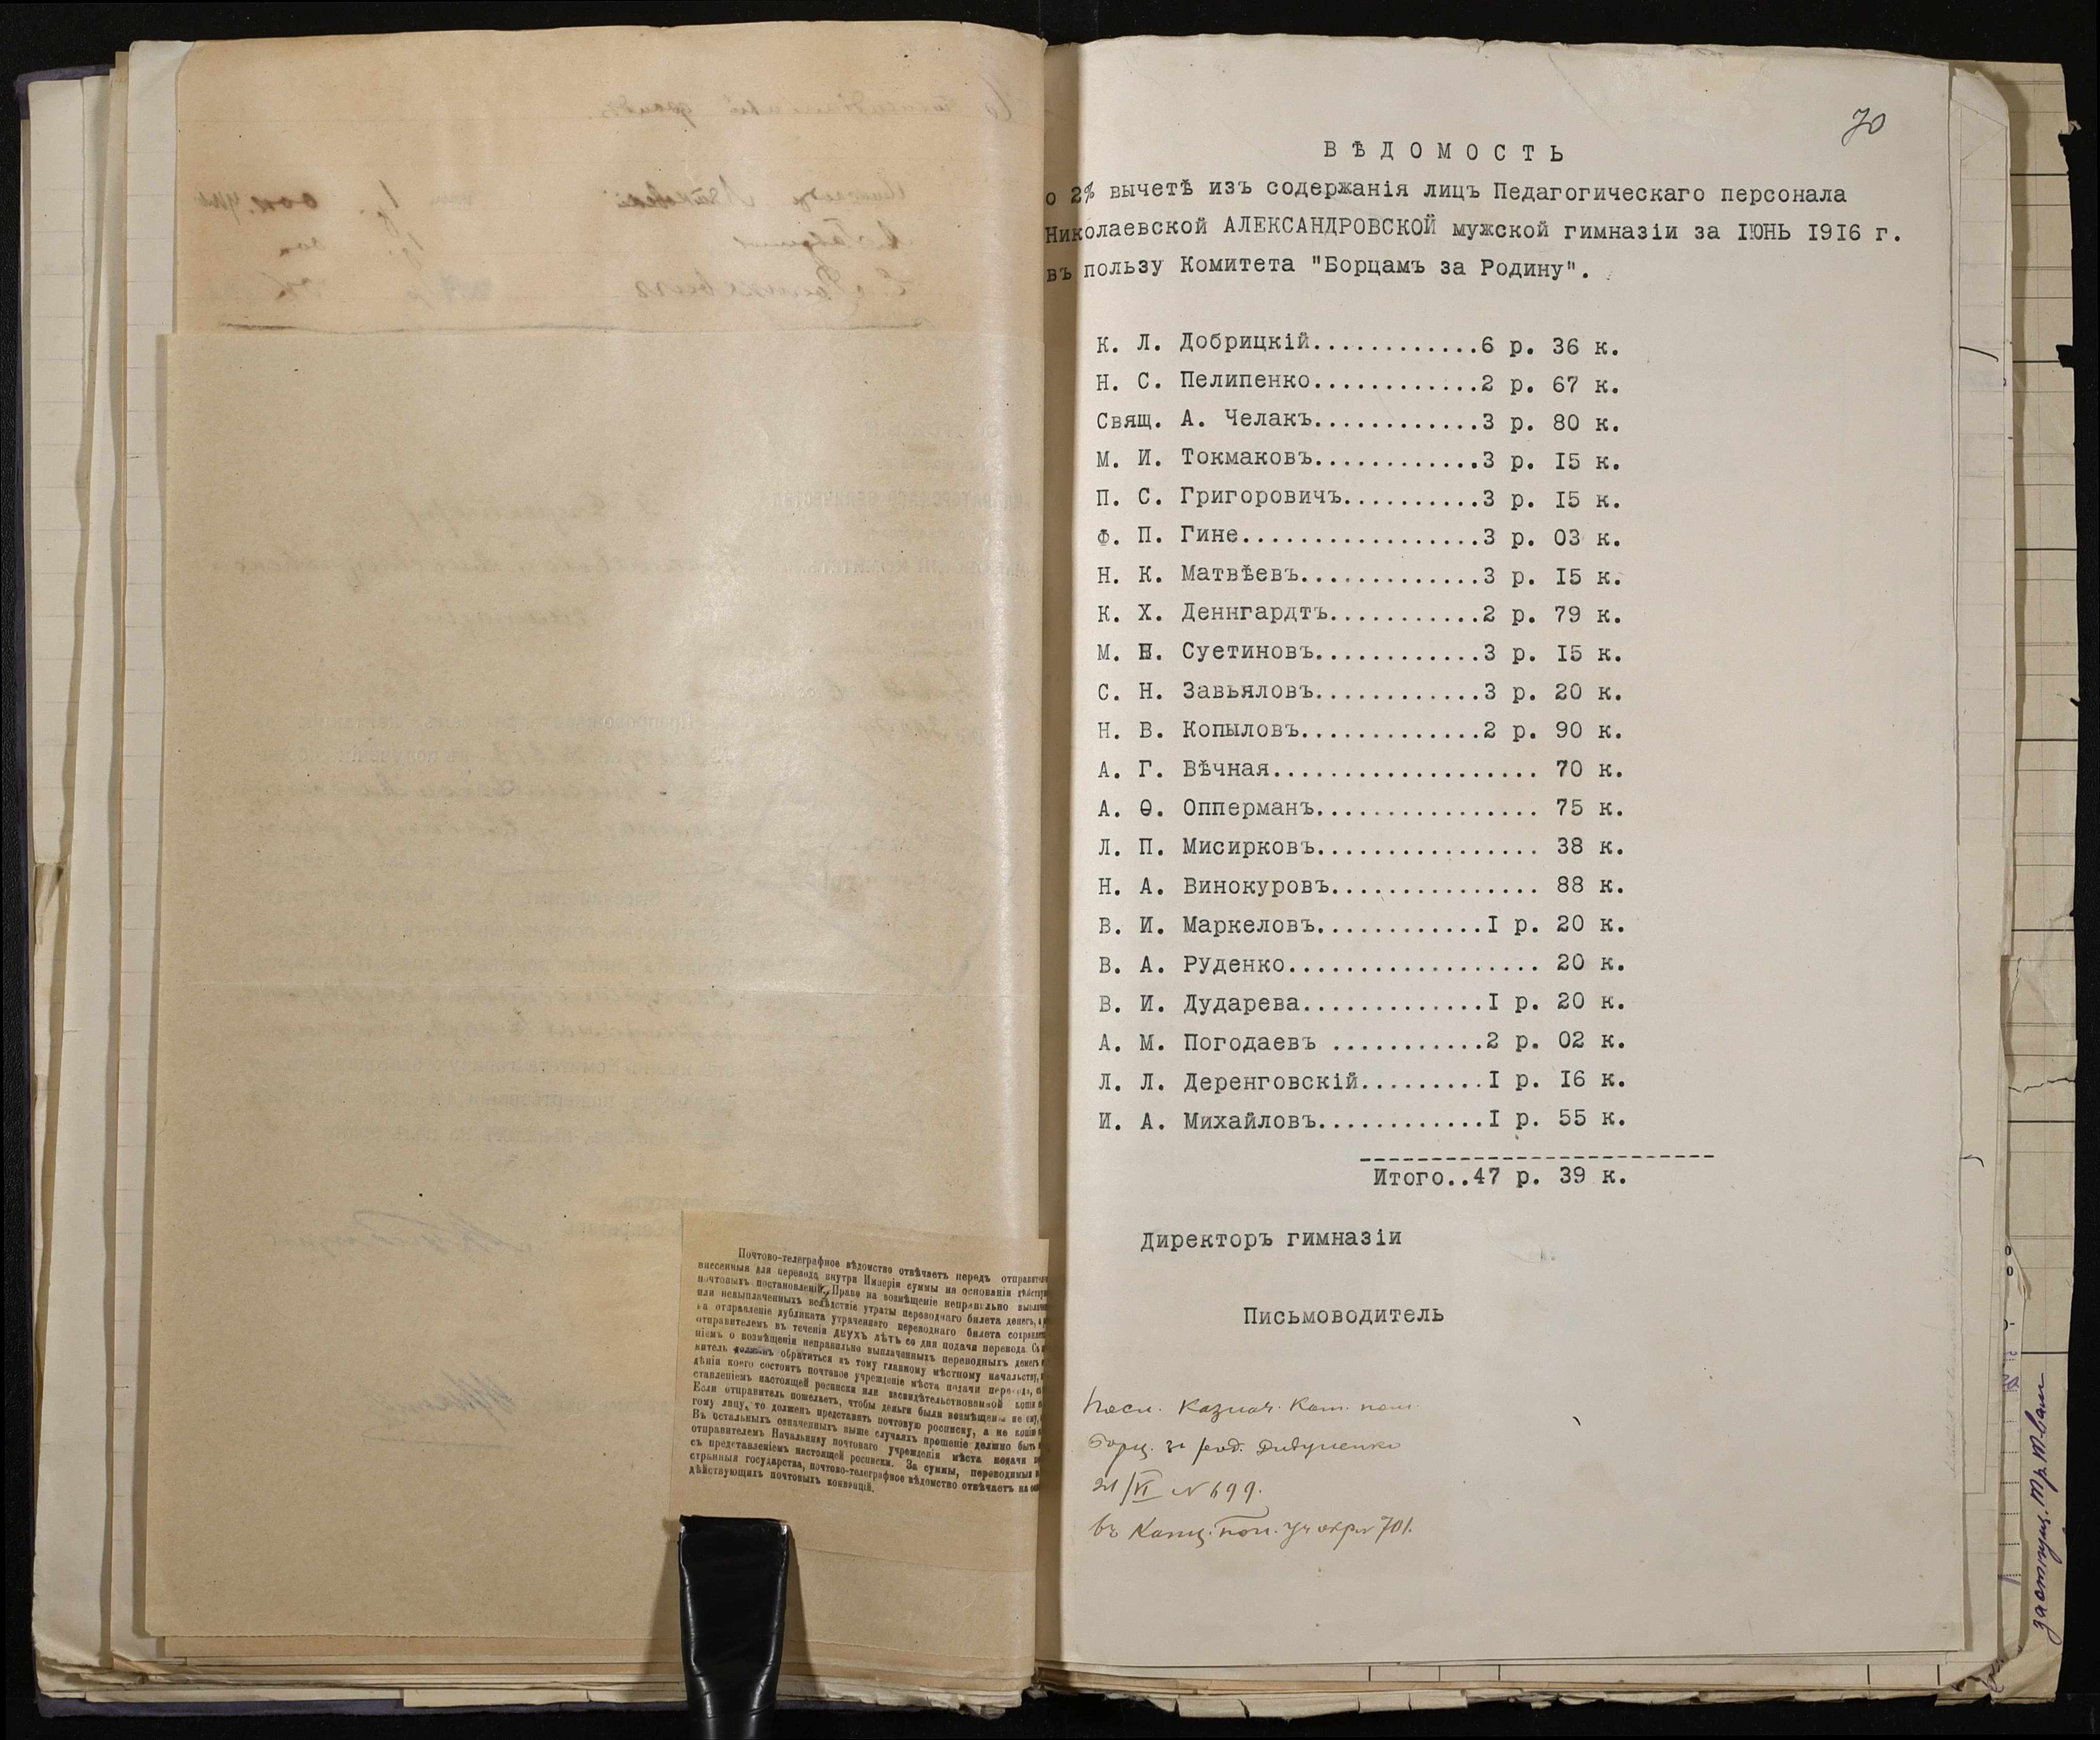 Почтово-телеграфное вѣдомство отвѣчаетъ передъ
внесенныя для перевода внутри Имперіи суммы на основаніи
почтовыхъ постановленій. Право на возмѣщеніе неправильно
или невыплаченныхъ вслѣдствіе утраты переводнаго билета денегъ,
на отправленіе дубликата утраченнаго переводнаго билета
отправителемъ въ теченіи ДВУХЪ ЛѢТЪ со дня подачи перевода.
ніемъ о возмѣщеніи неправильно выплаченныхъ переводныхъ денегъ
витель долженъ обратиться къ тому главному мѣстному начальству,
дѣніи коего состоитъ почтовое учрежденіе мѣста подачи перевода,
ставленіемъ настоящей росписки или засвидѣтельствованной копіи
Если отправитель пожелаетъ, чтобы деньги были возмѣщены не ему,
гому лицу, то долженъ представить почтовую росписку, а не копію
Въ остальныхъ означенныхъ выше случаяхъ прошеніе должно быть
отправителемъ Начальнику почтоваго учрежденія мѣста подачи
съ представленіемъ настоящей росписки. За суммы, переводимыя
странныя государства, почтово-телеграфное вѣдомство отвѣчаетъ на
дѣйствующихъ почтовыхъ конвенцій.
70
ВѢДОМОСТЬ
о 2% вычетѣ изъ содержанія лицъ Педагогическаго персонала
Николаевской АЛЕКСАНДРОВСКОЙ мужской гимназіи за IЮНЬ I9I6 г.
въ пользу Комитета "Борцамъ за Родину".
К. Л. Добрицкій............6 р. 36 к.
Н. С. Пелипенко............2 р. 67 к.
Свящ. А. Челакъ............3 р. 80 к.
М. И. Токмаковъ............3 р. I5 к.
П. С. Григоровичъ..........3 р. I5 к.
Ф. П. Гине.................3 р. 03 к.
Н. К. Матвѣевъ.............3 р. I5 к.
К. Х. Деннгардтъ...........2 р. 79 к.
М. Н. Суетиновъ............3 р. I5 к.
С. Н. Завьяловъ............3 р. 20 к.
Н. В. Копыловъ.............2 р. 90 к.
А. Г. Вѣчная................... 70 к.
А. Ѳ. Опперманъ................ 75 к.
Л. П. Мисирковъ................ 38 к.
Н. А. Винокуровъ............... 88 к.
В. И. Маркеловъ............I р. 20 к.
В. А. Руденко.................. 20 к.
В. И. Дударева.............I р. 20 к.
А. М. Погодаевъ ...........2 р. 02 к.
Л. Л. Деренговскій.........I р. I6 к.
И. А. Михайловъ............I р. 55 к.
Итого..47 р. 39 к.
Директоръ гимназіи
Письмоводитель
Посл. Казнач. Ком. пом.
Борц. за род. Дидусенко
21/VI №699.
въ Канц. поп. уч окр № 701.